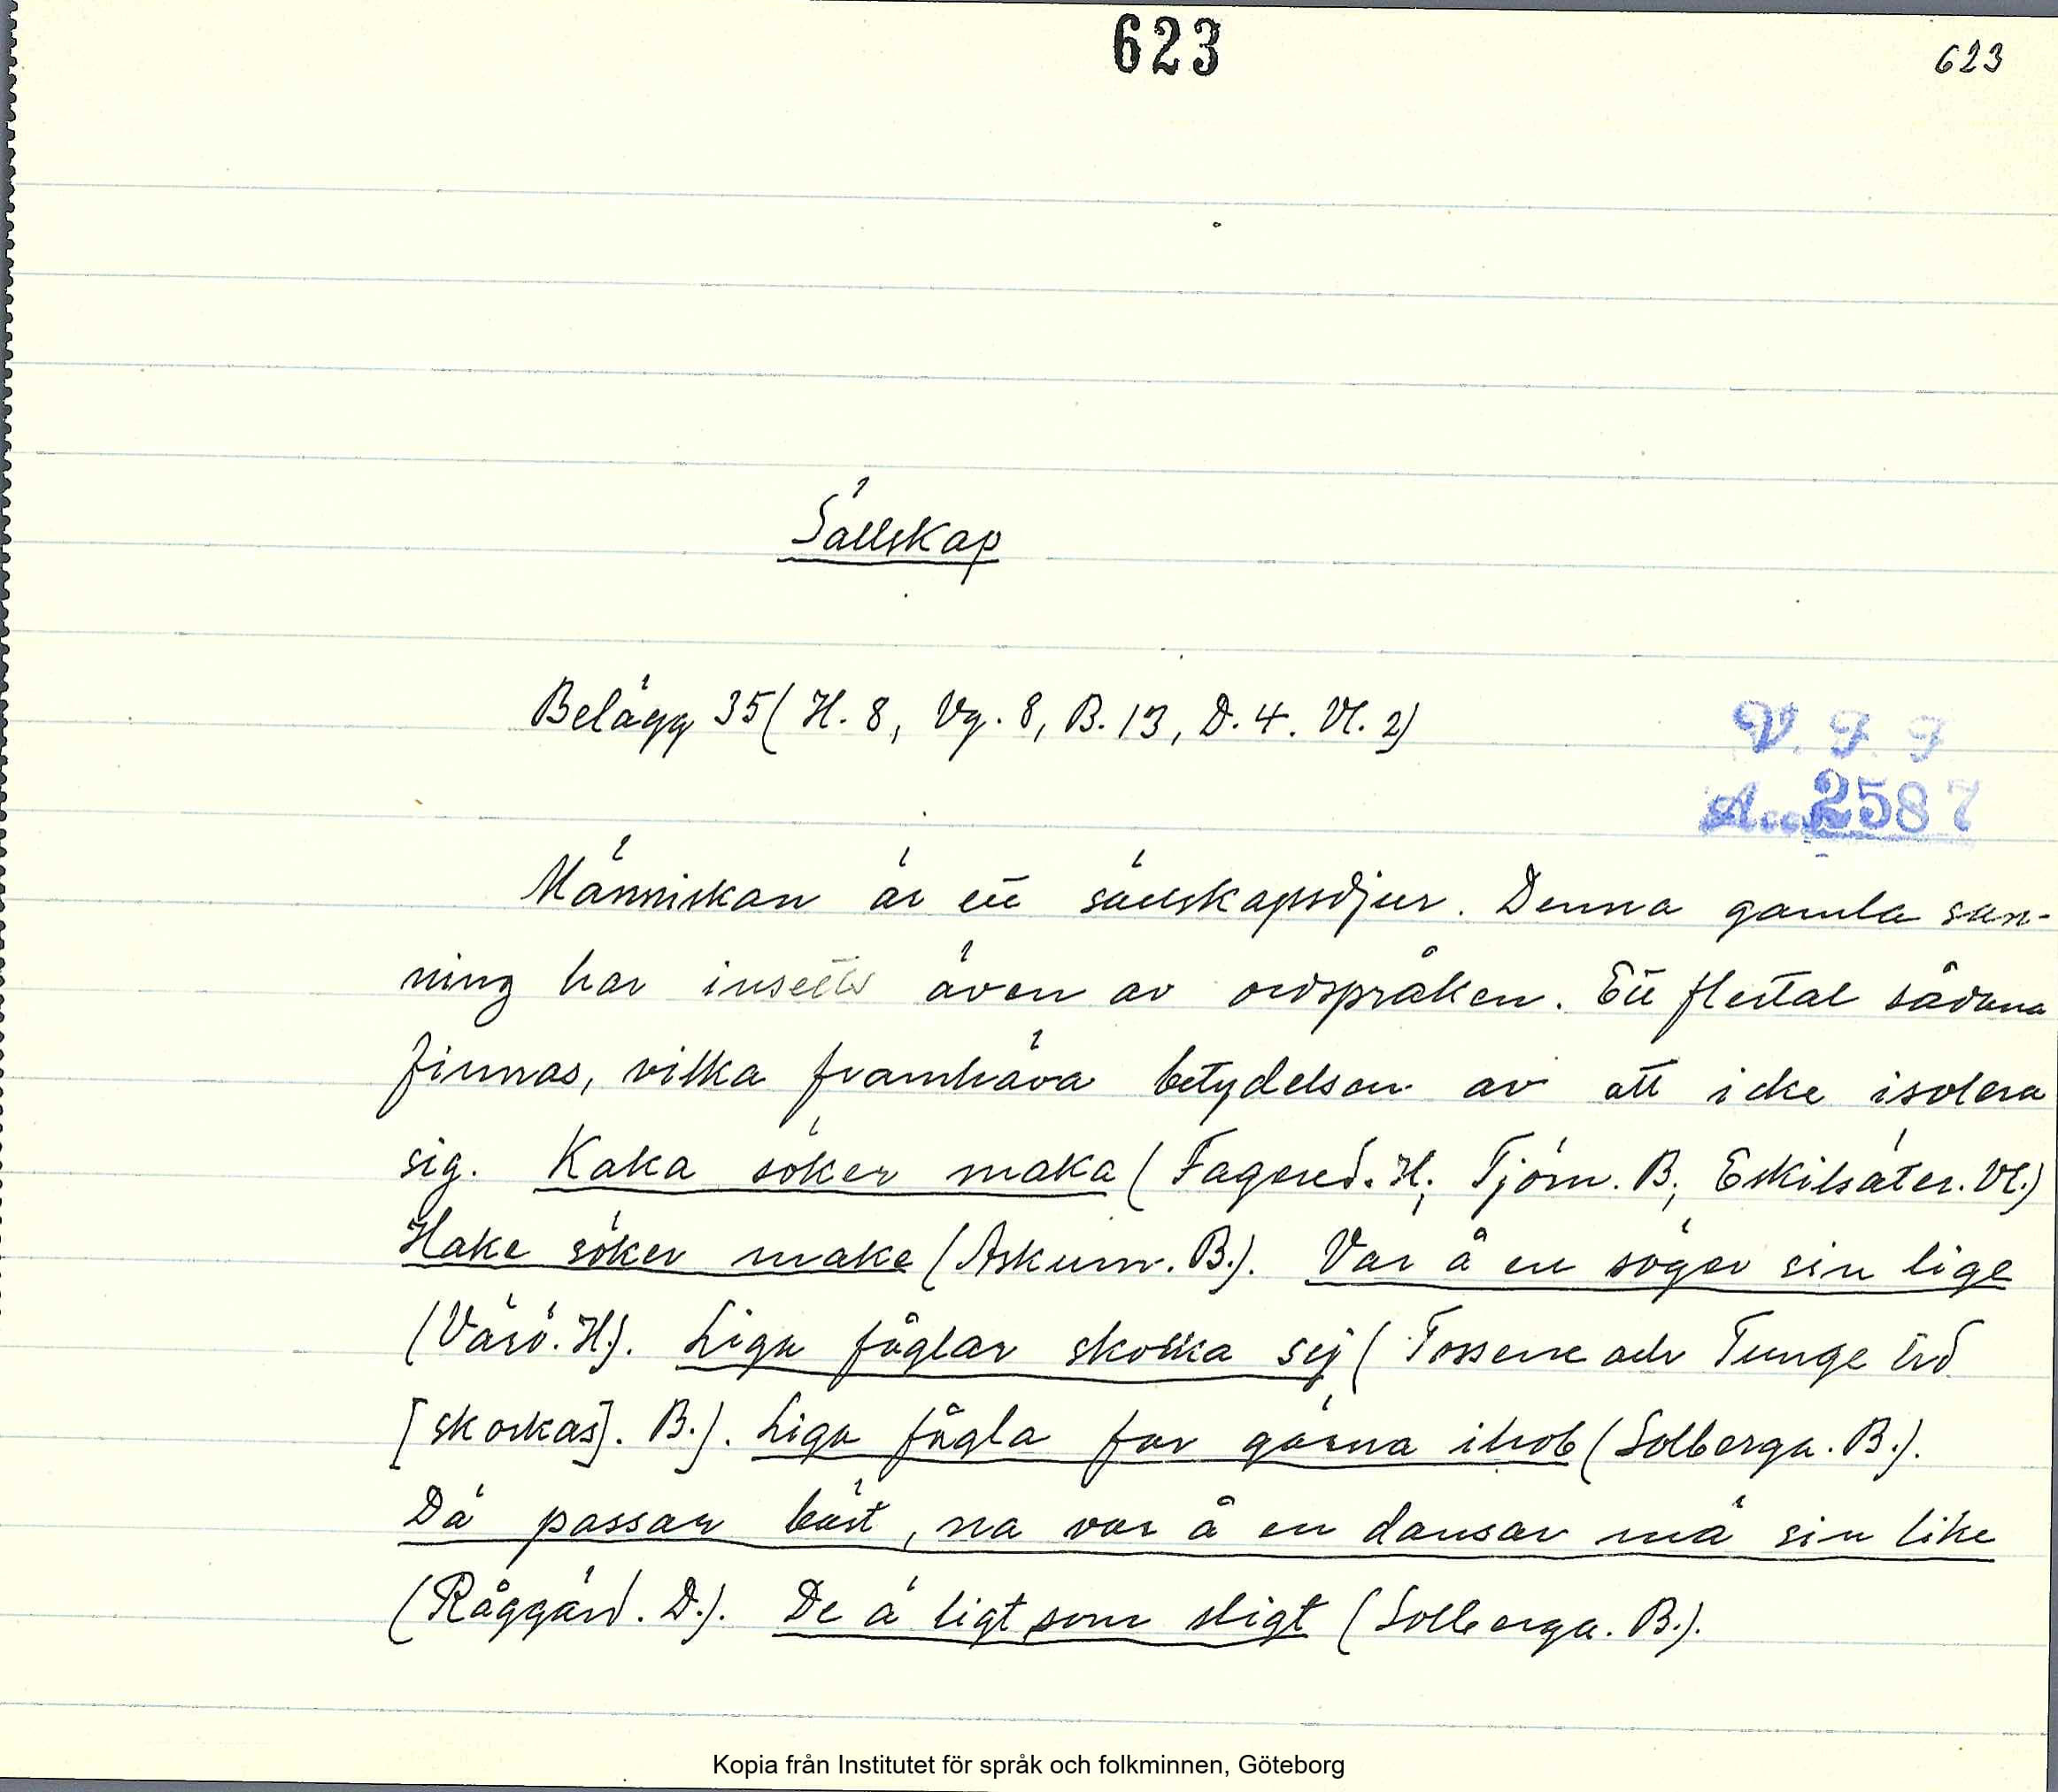 623
623
Sällskap
Belägg 35 (H. 8, Vg. 8, B. 13, D. 4. Vl. 2)
V. F. F
Acc. 2587
Människan är ett sällskapsdjur. Denna gamla san-
ning har insetts även av ordspråken. Ett flertal sådana
finnas, vilka framhäva betydelsen av att icke isolera
sig. Kaka söker maka (Fagered. H.; Tjörn. B.; Eskilsäter. Vl.)
Hake söker make (Askum. B.). Var å en söger sin lige
(Värö. H.). Liga fåglar skocka sej (Tossene och Tunge hd
[skockas]. B.). Liga fågla far gärna ihob (Solberga. B.).
Dä passar bäst, na var å en dansar mä sin like
(Råggärd. D.). De ä ligt som sligt (Solberga. B.).
Kopia från Institutet för språk och folkminnen, Göteborg